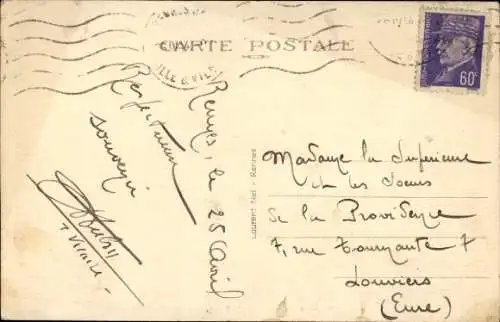 CARTE POSTALE
60c
Rennes, le 25 Avril
Respectueux
souvenir
Vicaire
Laurent Nel - Rennes
Madame la Supérieure
et les Soeurs
de la Providence
7, rue Tournante 7
Louviers
(Eure)